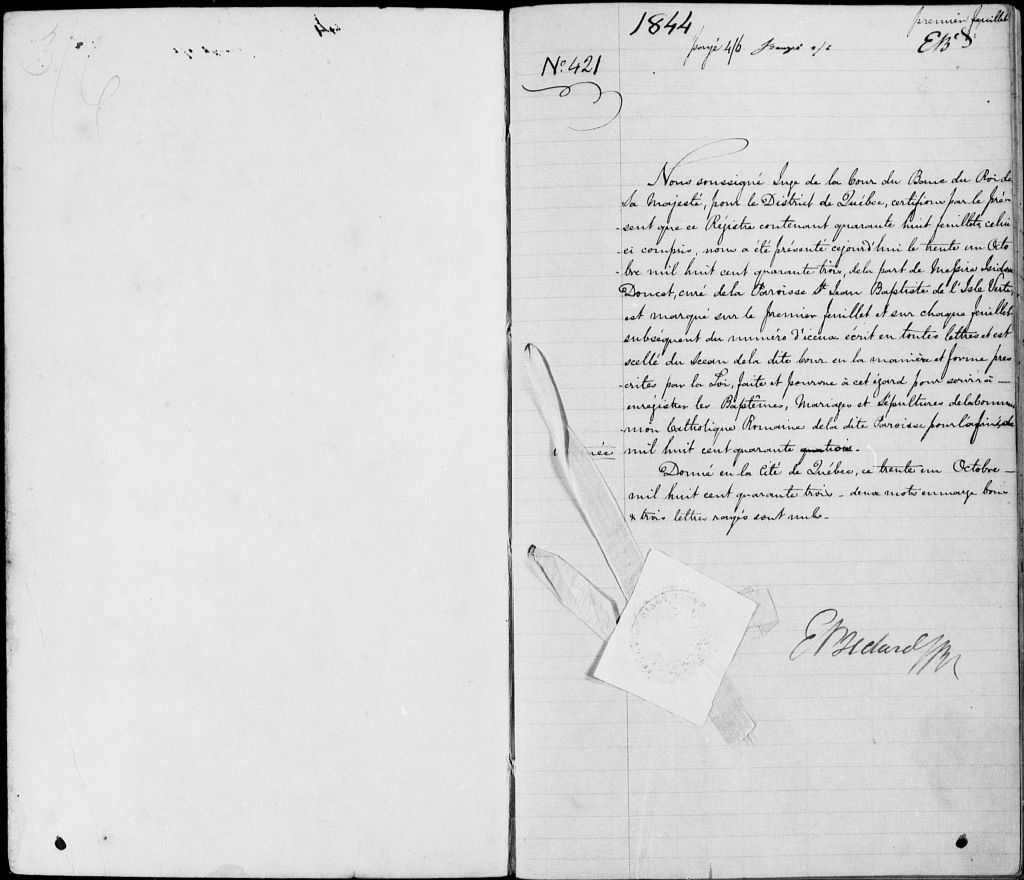 1844
premier feuillet
EB
payé 4/6
No. 421
Nous soussigné Juge de la Cour du Banc du Roi de
Sa Majesté, pour le District de Québec, certifions par le pré-
-sent que ce Régistre contenant quarante huit feuillets, celui
-ci compris, nous a été présenté cejourd'hui le trente un Octo
-bre mil huit cent quarante trois, dela part de Messire Isidore
Doucet, curé dela Paroisse St. Jean Baptiste de l'Isle Verte,
est marqué sur le premier feuillet et sur chaque feuillet
subséquent du numéro d'iceux écrit en toutes lettres et est
scellé du Sceau dela dite Cour en la manière et forme pres
-crites par la Loi, faite et pourvue à cet égard pour servir à
enrégistrer les Baptêmes, Mariages et Sépultures dela Commu
-nion Catholique Romaine dela dite Paroisse pour
mil huit cent quarante
Donné en la Cité de Québec, ce trente un Octobre
mil huit cent quarante trois - deux mots en marge bons
& trois lettres rayés sont nuls.
E Bedard JBR